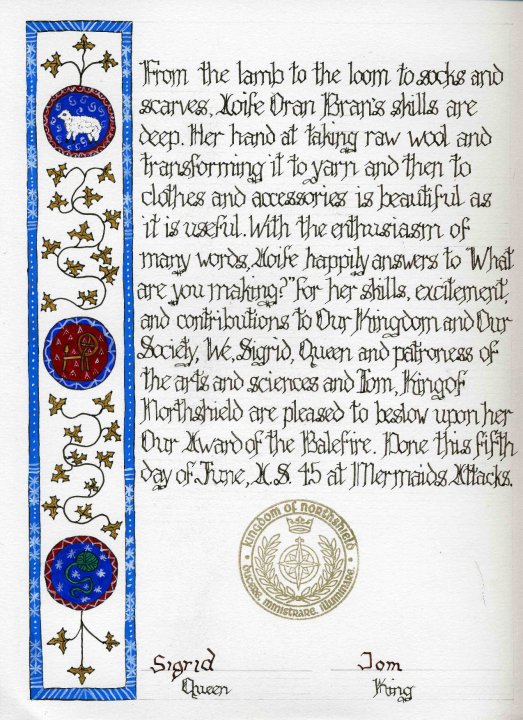 From the lamb to the loom to socks and
scarves, Aoife Oran Bran's skills are
deep. Her hand at taking raw wool and
transforming it to yarn and then to
clothes and accessories is beautiful as
it is useful. With the enthusiasm of
many words, Aoife happily answers to "What
are you making?" For her skills, excitement,
and contributions to Our Kingdom and Our
Society, We, Sigrid, Queen and patroness of
the arts and sciences and Tom, King of
Northshield are pleased to bestow upon her
Our Award of the Balefire. Done this fifth
day of June, A.S. 45 at Mermaids Attacks.
Kingdom of Northshield
Ducere, Ministrare, Illuminare.
Sigrid Tom
Queen King